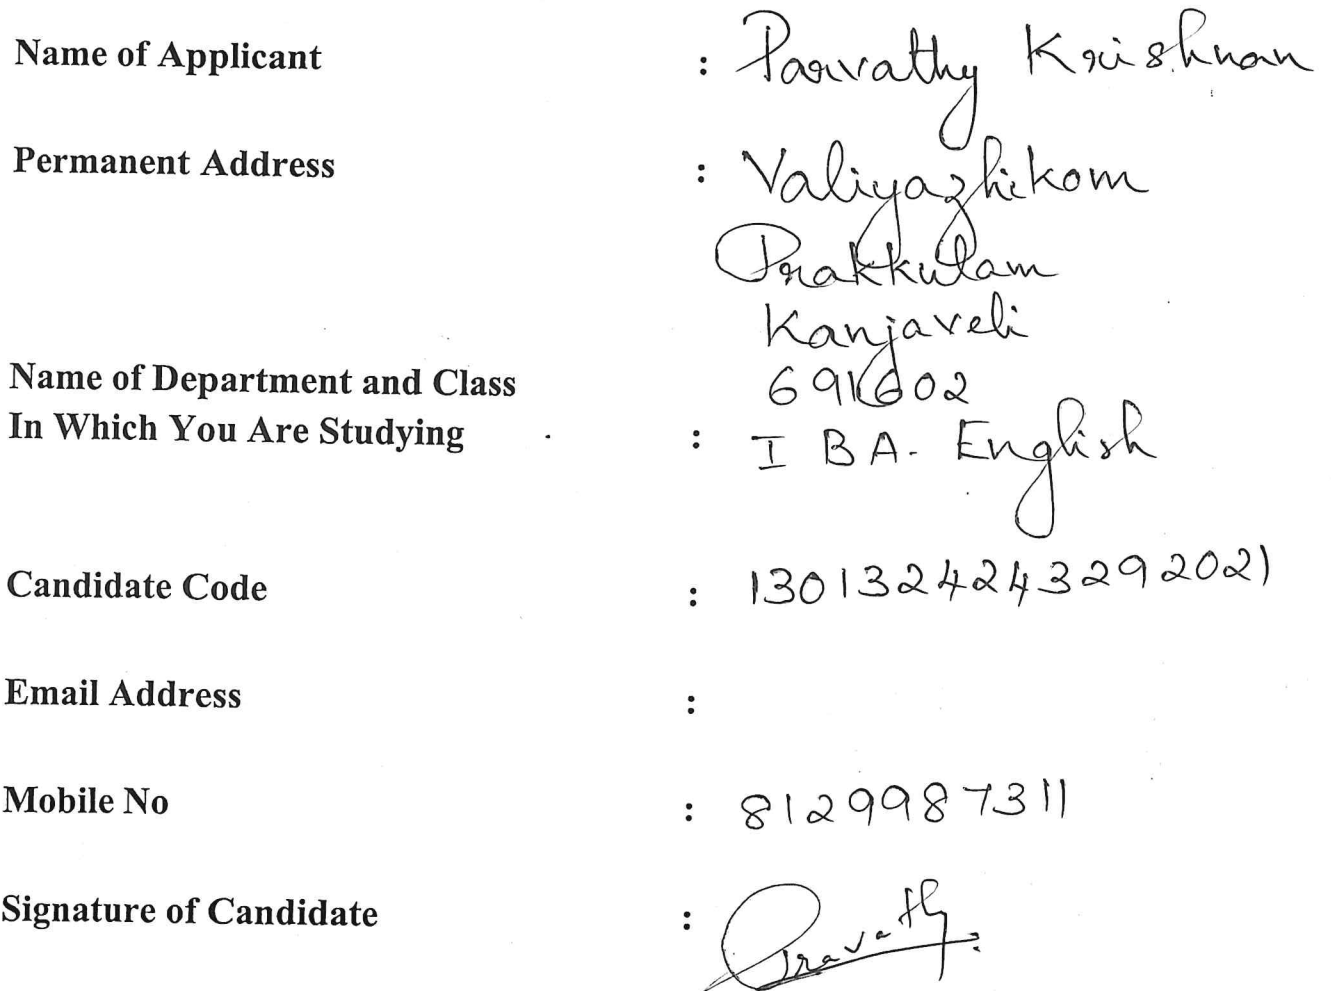 Name of Applicant : Parvathy Krishnan
Permanent Address : Valiyazhikom
Prakkulam
Kanjaveli
691602
Name of Department and Class
In Which You Are Studying : I BA. English
Candidate Code : 1301324243292021
Email Address :
Mobile No : 8129987311
Signature of Candidate : Pravathy